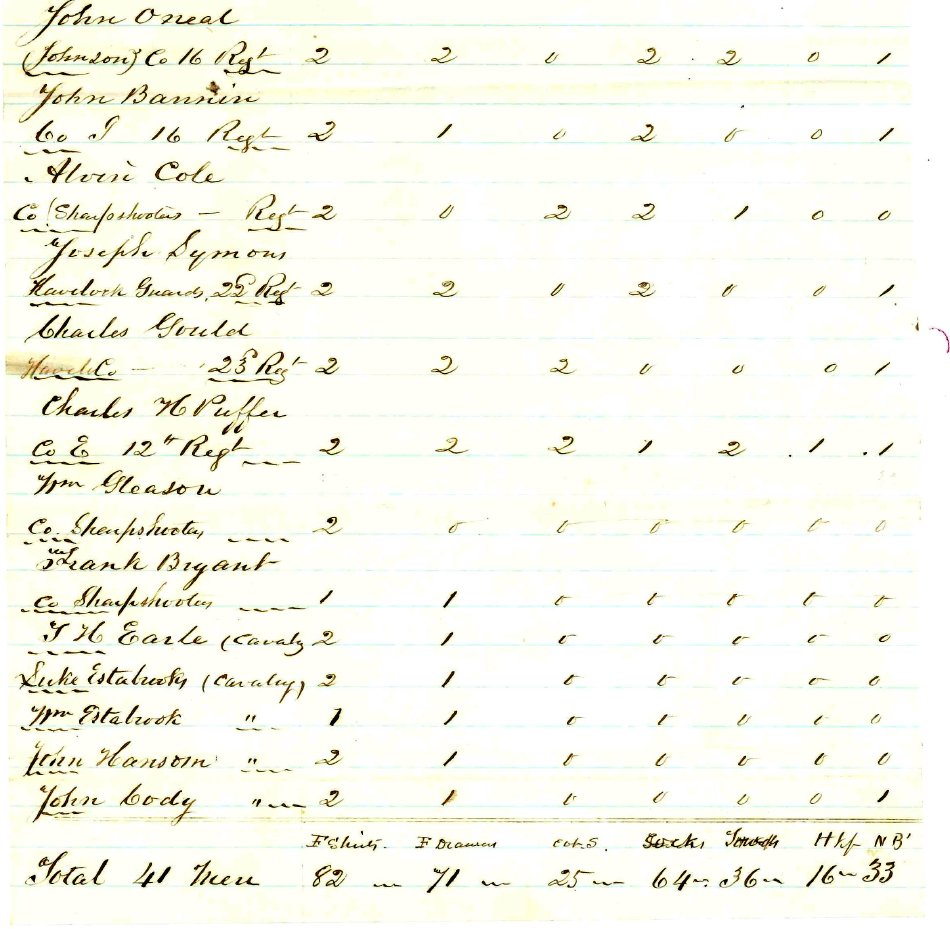 John Oneal
(Johnson) Co 16 Regt 2 2 0 2 2 0 1
John Bannin
Co I 16 Regt 2 1 0 2 0 0 1
Alvin Cole
Co Sharpshooters — Regt 2 0 2 2 1 0 0
Joseph Symons
Havelock Guards, 22d Regt 2 2 0 2 0 0 1
Charles Gould
Co — 23d Regt 2 2 2 0 0 0 1
Charles H Puffer
Co E 12th Regt 2 2 2 1 2 1 1
Wm Gleason
Co. Sharpshooters 2 0 0 0 0 0 0
Frank Bryant
Co Sharpshooters 1 1 0 0 0 0 0
T H Earle (Cavalry 2 1 0 0 0 0 0
Luke Estabrooks (Cavalry) 2 1 0 0 0 0 0
Wm Estabrook " 1 1 0 0 0 0 0
John Hansom " 2 1 0 0 0 0 0
John Cody " 2 1 0 0 0 0 1
F Shirts. F Drawers Socks Towels Hkf N B'
Total 41 Men 82 71 25 64 36 16 33